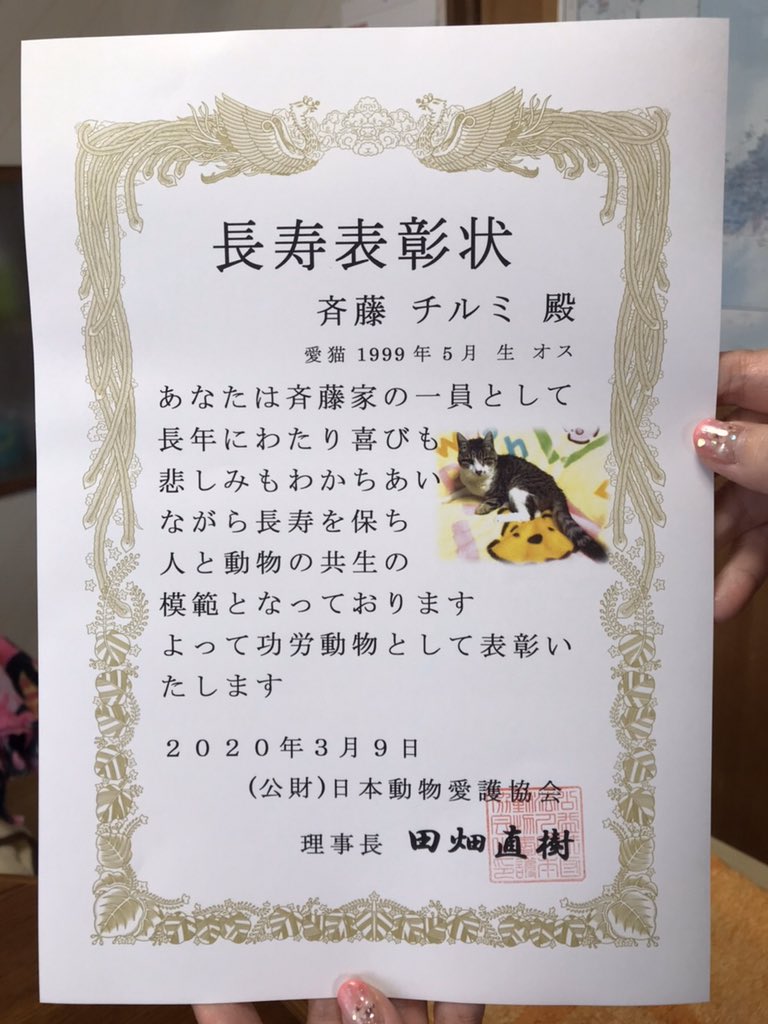 長寿表彰状
斉藤 チルミ 殿
愛猫 1999年5月 生 オス
あなたは斉藤家の一員として
長年にわたり喜びも
悲しみもわかちあい
ながら長寿を保ち
人と動物の共生の
模範となっております
よって功労動物として表彰い
たします
２０２０年３月９日
(公財)日本動物愛護協会
理事長 田畑直樹